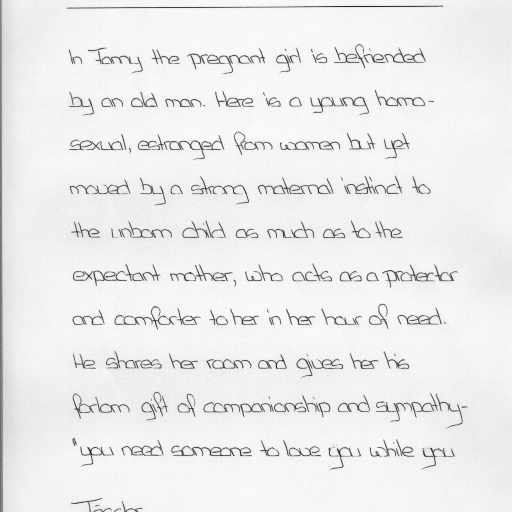 In Tomy the pregnant girl is befriended
by an old man. Here is a young homo-
sexual, estranged from women but yet
moved by a strong maternal instinct to
the unborn child as much as to the
expectant mother, who acts as a protector
and comforter to her in her hour of need.
He shares her room and gives her his
forlorn gift of companionship and sympathy-
"you need someone to love you while you